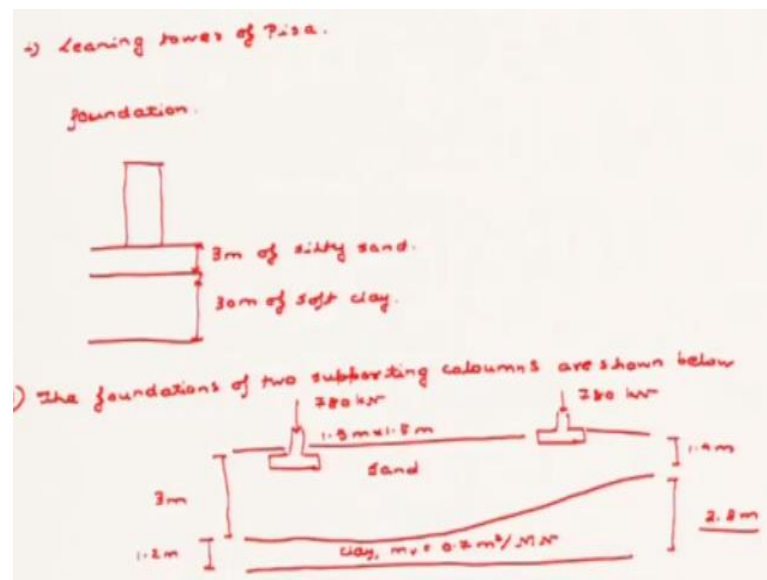 i) Leaning tower of Pisa.
foundation.
3m of silty sand.
30m of soft clay.
) The foundations of two supporting caloumns are shown below
780 kN
780 kN
1.5m
sand
1.4m
3m
2.8m
1.2m
clay, mv = 0.7 m²/MN